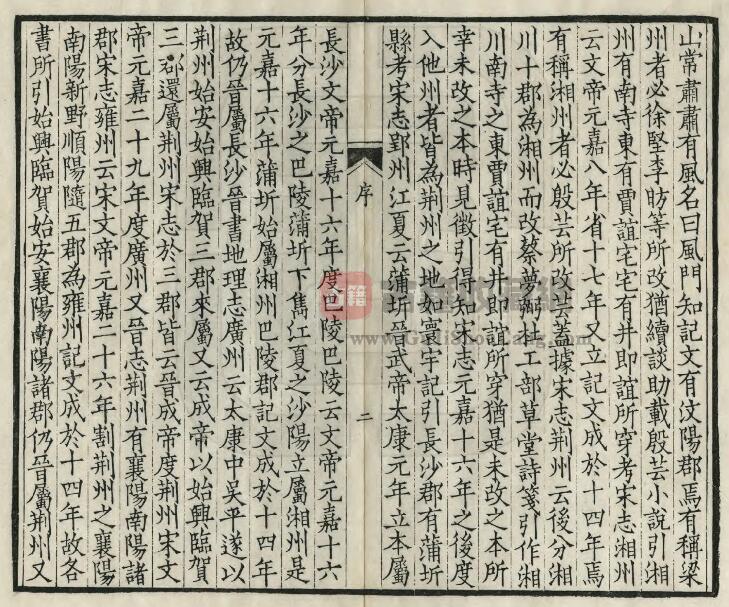 山常肅肅有風名曰風門知記文有汶陽郡焉有稱梁
州者必徐堅李昉等所改猶續談助載殷芸小說引湘
州有南寺東有賈誼宅宅有井即誼所穿考宋志湘州
云文帝元嘉八年省十七年又立記文成於十四年焉
有稱湘州者必殷芸所改芸蓋據宋志荆州云後分湘
川十郡為湘州而改蔡夢弼杜工部草堂詩箋引作湘
川南寺之東賈誼宅有井即誼所穿猶是未改之本所
幸未改之本時見徵引得知宋志元嘉十六年之後度
入他州者皆為荆州之地如寰宇記引長沙郡有蒲圻
縣考宋志郢州江夏云蒲圻晉武帝太康元年立本屬
序
二
長沙文帝元嘉十六年度巴陵巴陵云文帝元嘉十六
年分長沙之巴陵蒲圻下雋江夏之沙陽立屬湘州是
元嘉十六年蒲圻始屬湘州巴陵郡記文成於十四年
故仍晉屬長沙晉書地理志廣州云太康中吳平遂以
荆州始安始興臨賀三郡來屬又云成帝以始興臨賀
三郡還屬荆州宋志於三郡皆云晉成帝度荆州宋文
帝元嘉二十九年度廣州又晉志荆州有襄陽南陽諸
郡宋志雍州云宋文帝元嘉二十六年割荆州之襄陽
南陽新野順陽隨五郡為雍州記文成於十四年故各
書所引始興臨賀始安襄陽南陽諸郡仍晉屬荆州又
古籍收藏網
www.GuJiShouCang.com